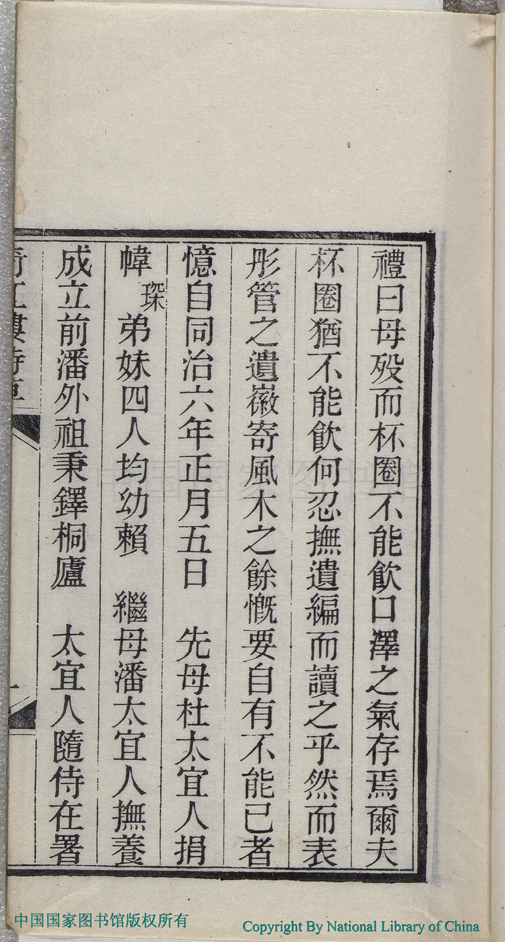 禮曰母歿而杯圈不能飲口澤之氣存焉爾夫
杯圈猶不能飲何忍撫遺編而讀之乎然而表
彤管之遺徽寄風木之餘慨要自有不能已者
憶自同治六年正月五日 先母杜太宜人捐
幃 琛 弟妹四人均幼賴 繼母潘太宜人撫養
成立前潘外祖秉鐸桐廬 太宜人隨侍在署
中国国家图书馆版权所有
Copyright By National Library of China